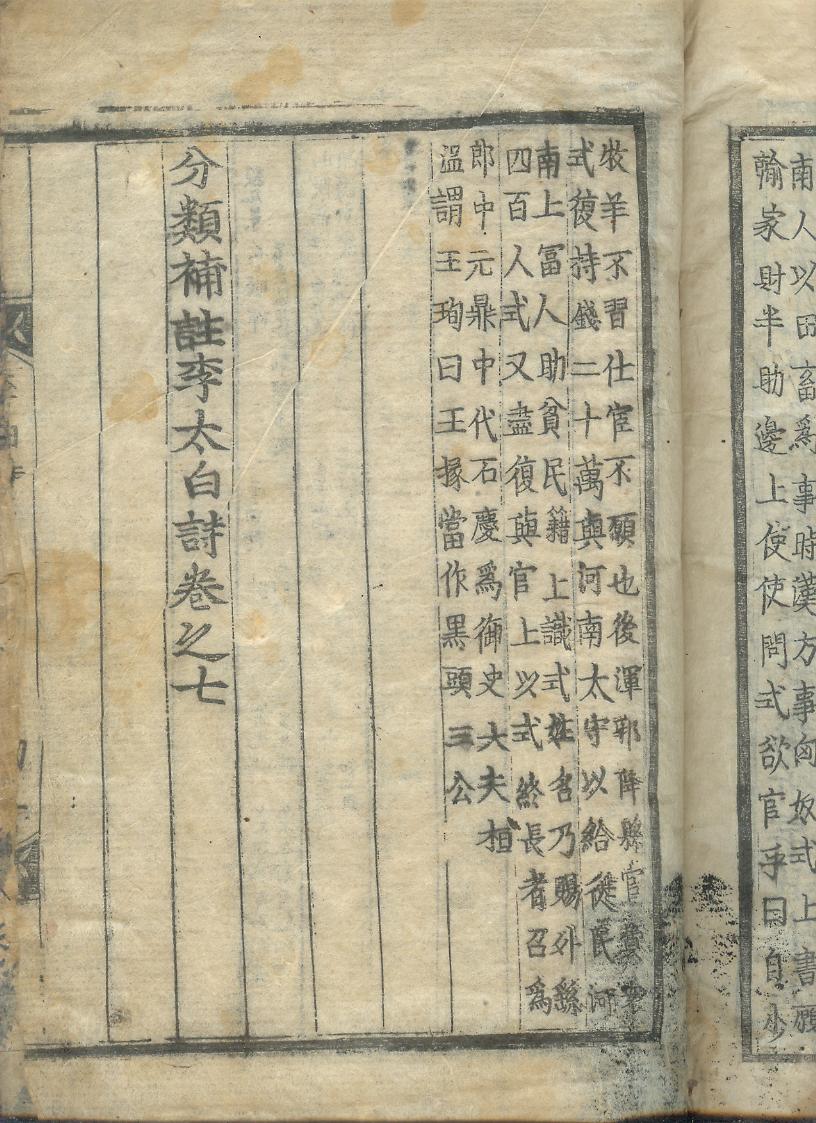 南人以田畜爲事時漢方事匈奴式上書願
輸家財半助邊上使使問式欲官乎曰自少
牧羊不習仕宦不願也後渾耶降縣官費衆
式復持錢二十萬與河南太守以給徙民河
南上冨人助貧民籍上識式姓名乃賜外繇
四百人式又盡復與官上以式終長者召爲
郎中元鼎中代石慶爲御史大夫桓
溫謂王珣曰王掾當作黒頭三公
分類補註李太白詩卷之七